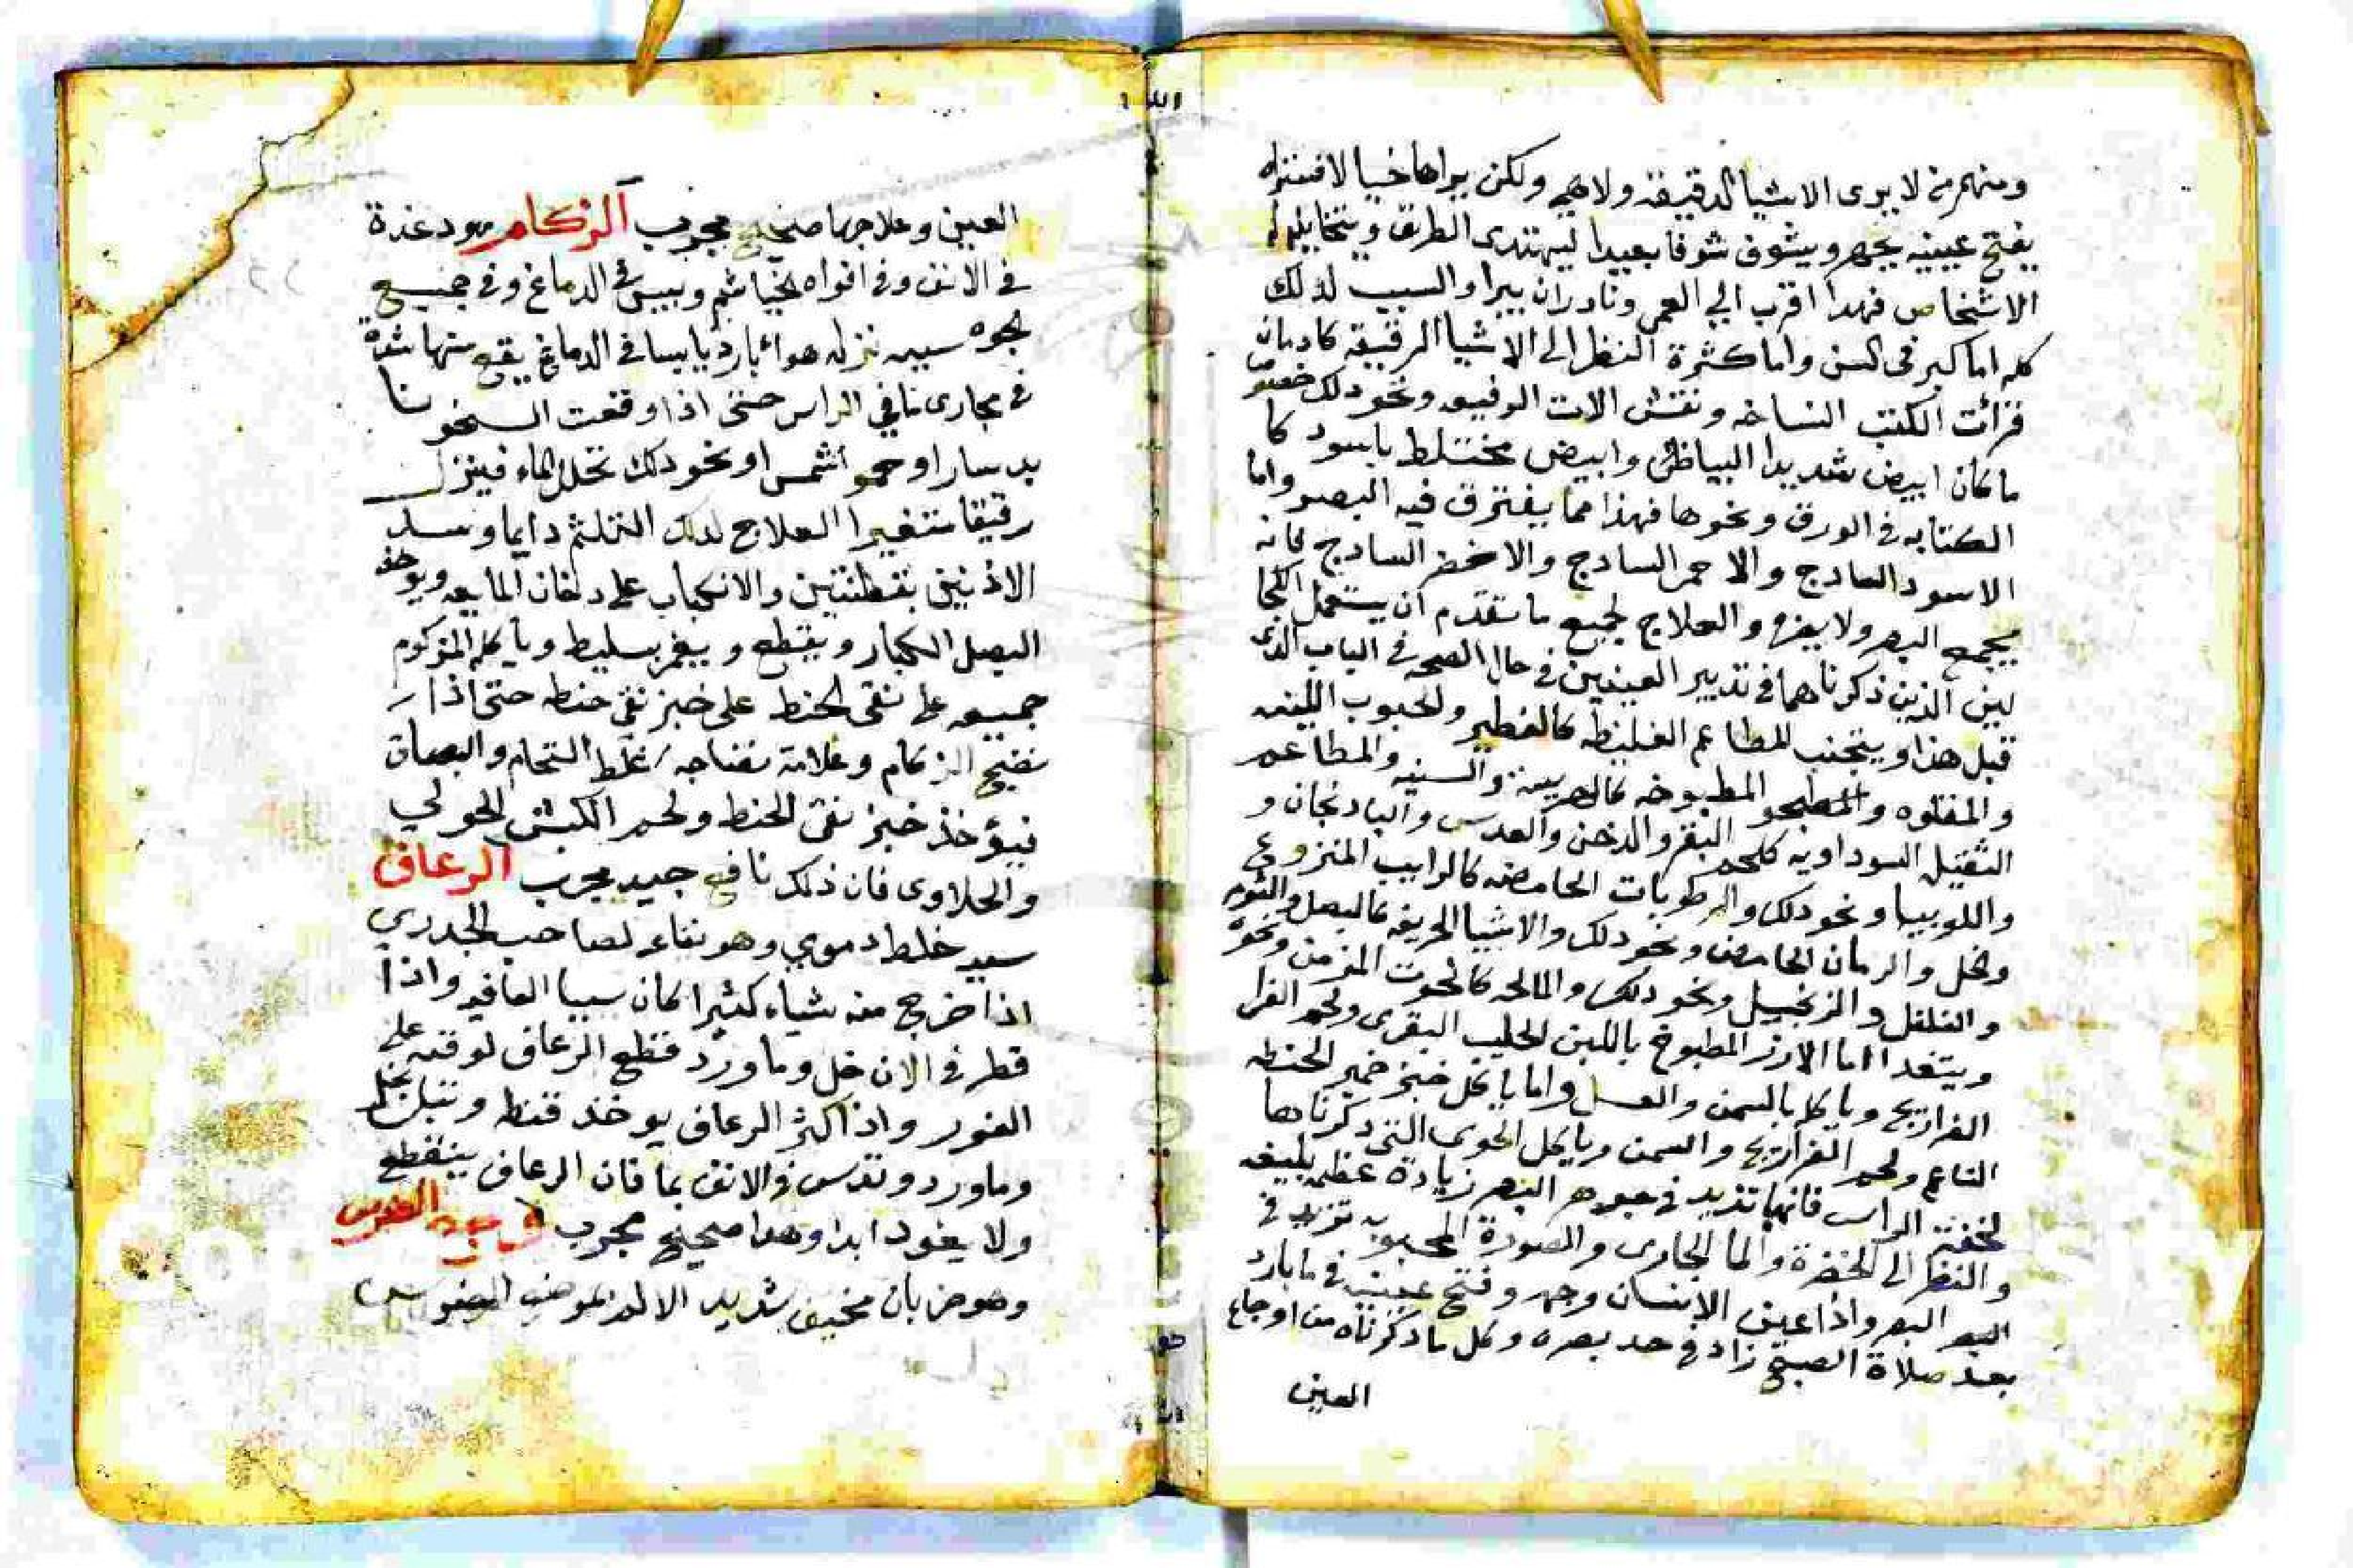 ومنهم من لا يرى الاشيا الدقيقه ولاهي ولكن يراها خيالا
يفتح عينيه يجهر ويشوف شوفا بعيدا ليهتدى الطريق ويتخايله
الاشخاص فهدا اقرب الي العمى ونادرا ان يبرا والسبب لذلك
كله اما كبر فى السن واما كثرة النظر الى الاشيا الرقيقه كادمان
قرائت الكتب النساخه ونقش الالات الرقيقه ونحو دلك خصوصا
ما كان ابيض شديدا البياظ وابيض مختلط باسود كا
الكتابه فى الورق ونحوها فهذا مما يفترق فيه البصر واما
الاسود السادج والاحمر السادج والاخضر السادج فانه
يجمع البصر ولا يفرق والعلاج لجميع ما تقدم ان يستعمل الكحا
لين الذين ذكرناهما فى تدبير العينين فى حال الصحه فى الباب الذى
قبل هذا ويتجنب المطاعم الغليظه كالفطير والحبوب
والمقلوه المطبوخه كالهريسة والمطاعم
الثقيل السوداويه كلحم البقر والدخن والعدس والبادنجان و
واللوبيا ونحو دلك والرطوبات الحامضه كالرايب المنزوع
والخل والرمان الحامض ونحو دلك والاشيا الحريفه كالبصل والثوم
والفلفل والزنجبيل ونحو دلك والمالحه كالحوت المزمن ونحوه
ويتغدا اما الارز المطبوخ باللبن الحليب البقرى ولحم
الفراريج وياكل بالسمن والعسل واما ياكل خبز خمير الحنطه
الناعم ولحم الفراريج والسمن وياكل الحلوى التى ذكرناها
لخفة الراس فانها تزيد فى جوهر البصر زيادة عظمه بليغه
والنظر الى الخضرة والما الجارى والصورة المحبوبه تزيد فى
البصر واذا الانسان وجهه وفتح عينيه فى ما بارد
بعد صلاة الصبح زاد فى حد بصره وكل ما ذكرناه من اوجاع
العين
العين وعلاجها صحيح مجرب الزكام
فى الانف وفى افواه الخياشم ويبس فى الدماغ وفى جميع
هواء بارد يابسا فى الدماغ يقع منها شدة
فى مجارى الراس حتى اذا وقعت السخو
او حمو شمس او نحو دلك تحلل الماء فينزل
رقيقا متغيرا العلاج لدلك التلثم دايما وسد
الاذنين بقطنتين والانكباب على دخان المايعه ويوخذ
البصل الكبار ويقطع ويغمر بسليط وياكله المزكوم
جميعه على نقى الحنط على خبز نقى حنطه حتى اذا
نضج الزكام وعلامة نضاجه غلظ النخام والبصاق
فيؤخذ خبز نقى الحنط ولحم الكبش الحولي
والحلاوى فان ذلك نافع جيد مجرب الرعاف
سببه خلط دموي وهو نقاء لصاحب الجدري
اذا خرج منه شياء كثيرا كان سببا العافيه واذا
قطر فى الانف خل وماورد قطع الرعاف لوقته على
الفور واذا كثر الرعاف يوخذ قنطه وتبل بخل
وماورد وتدس فى الانف بما فان الرعاف ينقطع
ولا يعود ابدا وهدا صحيح مجرب الضرس
وهو ضربان مخيف شديد الالم